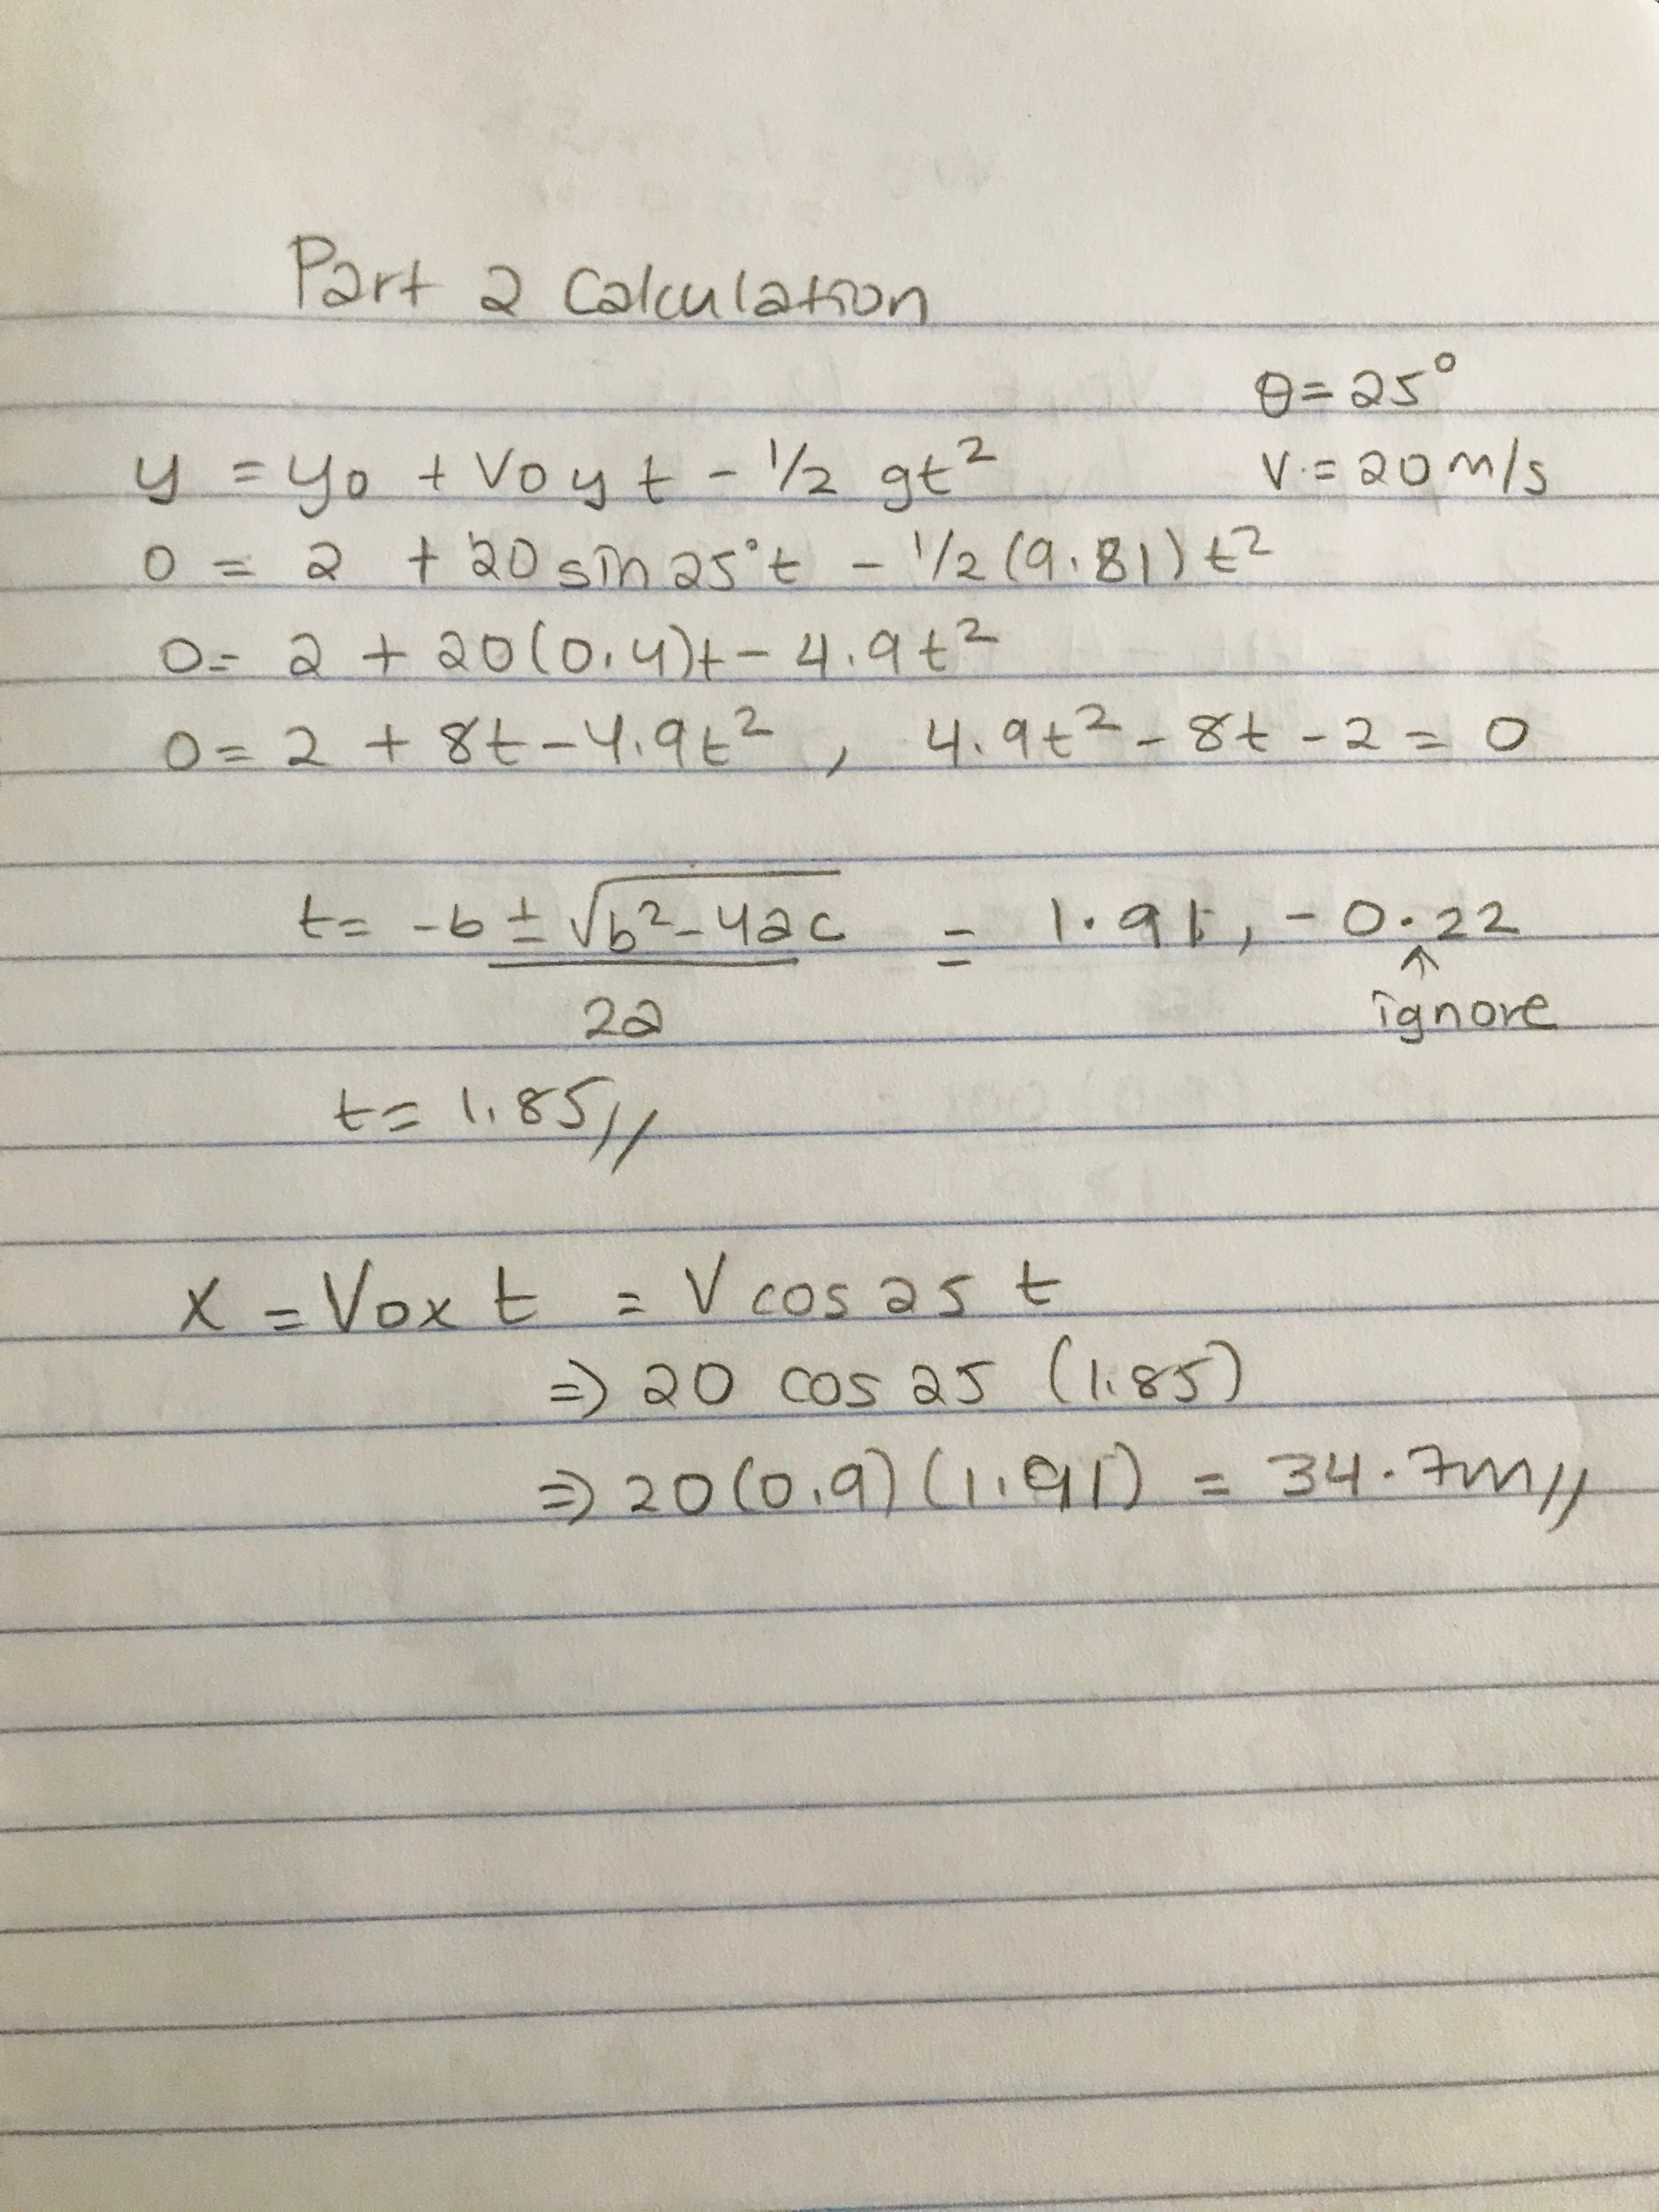 Part 2 Calculation
θ = 25°
y = y0 + V0y t - 1/2 gt²
V = 20 m/s
0 = 2 + 20 sin 25° t - 1/2 (9.81) t²
0 = 2 + 20(0.4)t - 4.9t²
0 = 2 + 8t - 4.9t² , 4.9t² - 8t - 2 = 0
t = -b ± √b² - 4ac = 1.91, -0.22
2a
↑
ignore
t = 1.85 //
x = V0x t = V cos 25 t
⇒ 20 cos 25 (1.85)
⇒ 20(0.9)(1.91) = 34.7m //